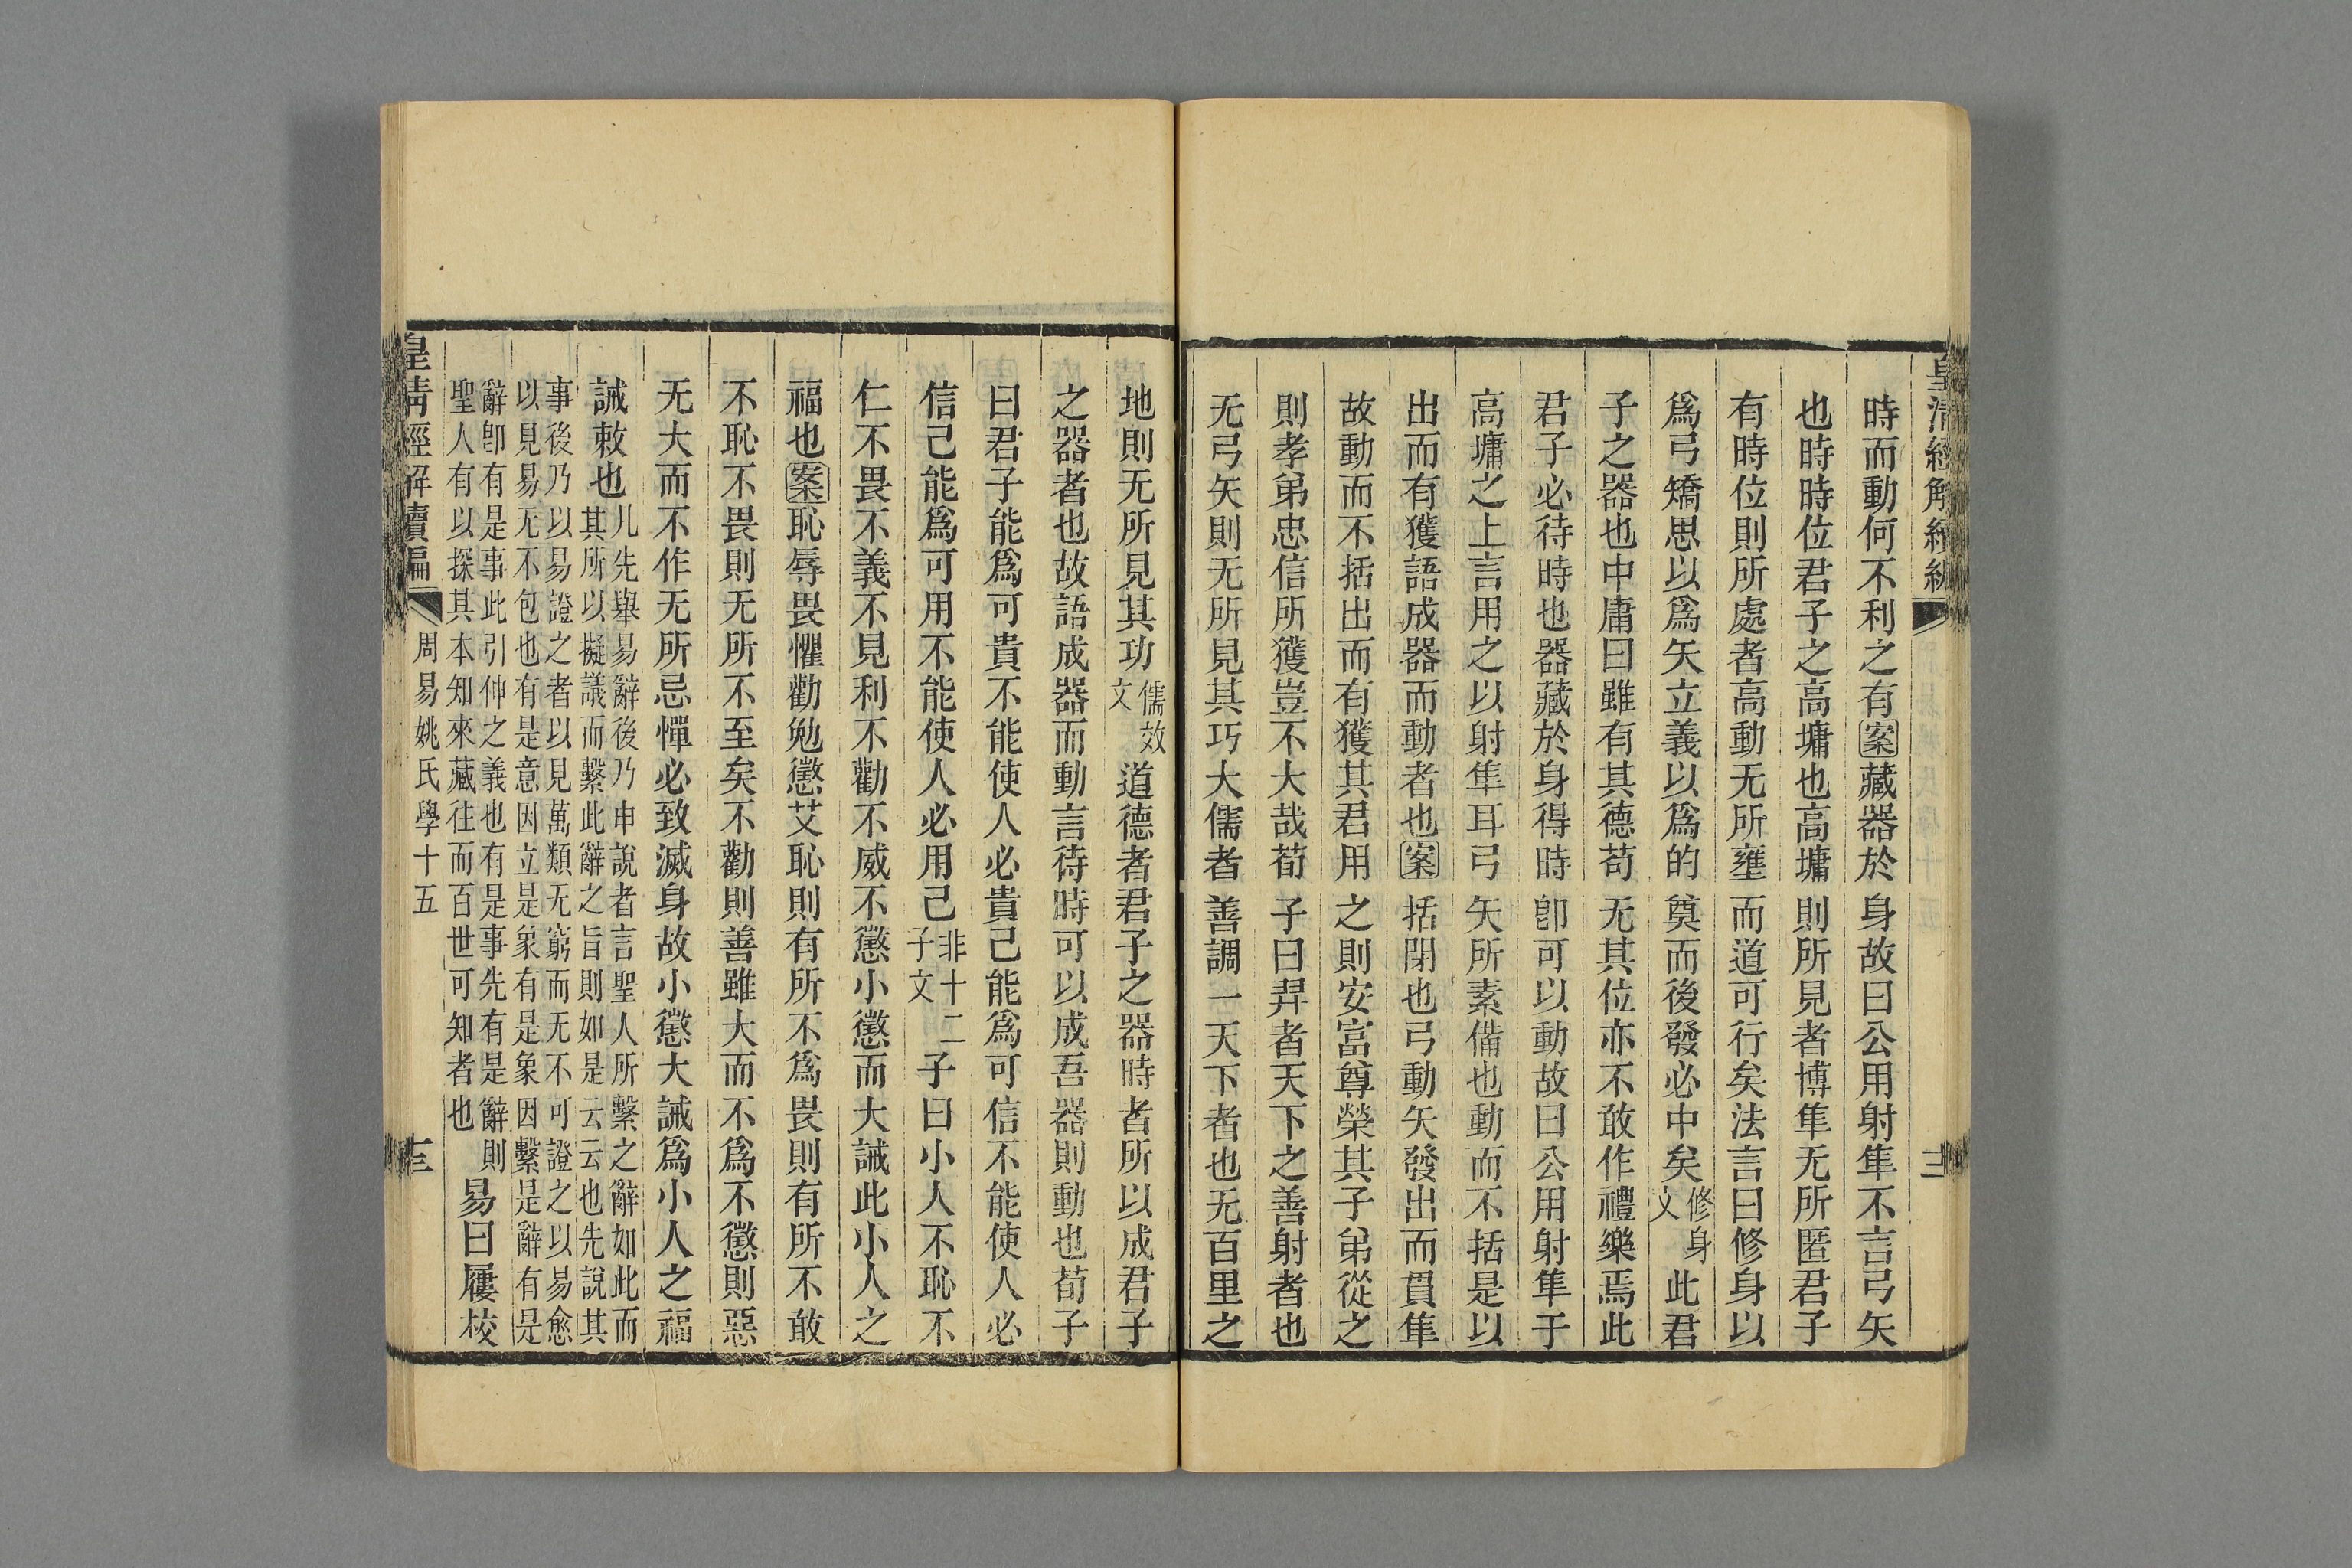 時而動何不利之有案藏器於身故曰公用射隼不言弓矢
也時時位君子之高墉也高墉則所見者博隼无所匿君子
有時位則所處者高動无所壅而道可行矣法言曰修身以
爲弓矯思以爲矢立義以爲的奠而後發必中矣修身文此君
子之器也中庸曰雖有其德苟无其位亦不敢作禮樂焉此
君子必待時也器藏於身得時卽可以動故曰公用射隼于
高墉之上言用之以射隼耳弓矢所素備也動而不括是以
出而有獲語成器而動者也案括閉也弓動矢發出而貫隼
故動而不括出而有獲其君用之則安富尊榮其子弟從之
則孝弟忠信所獲豈不大哉荀子曰羿者天下之善射者也
无弓矢則无所見其巧大儒者善調一天下者也无百里之
地則无所見其功儒效文道德者君子之器時者所以成君子
之器者也故語成器而動言待時可以成吾器則動也荀子
曰君子能爲可貴不能使人必貴己能爲可信不能使人必
信己能爲可用不能使人必用己非十二子文子曰小人不恥不
仁不畏不義不見利不勸不威不懲小懲而大誡此小人之
福也案恥辱畏懼勸勉懲艾恥則有所不爲畏則有所不敢
不恥不畏則无所不至矣不勸則善雖大而不爲不懲則惡
无大而不作无所忌憚必致滅身故小懲大誡爲小人之福
誡敕也凡先舉易辭後乃申說者言聖人所繫之辭如此而
其所以擬議而繫此辭之旨則如是云云也先說其
事後乃以易證之者以見萬類无窮而无不可證之以易愈
以見易无不包也有是意因立是象有是象因繫是辭有是
辭卽有是事此引伸之義也有是事先有是辭則
聖人有以探其本知來藏往而百世可知者也
易曰屨校
皇清經解續編
周易姚氏學十五